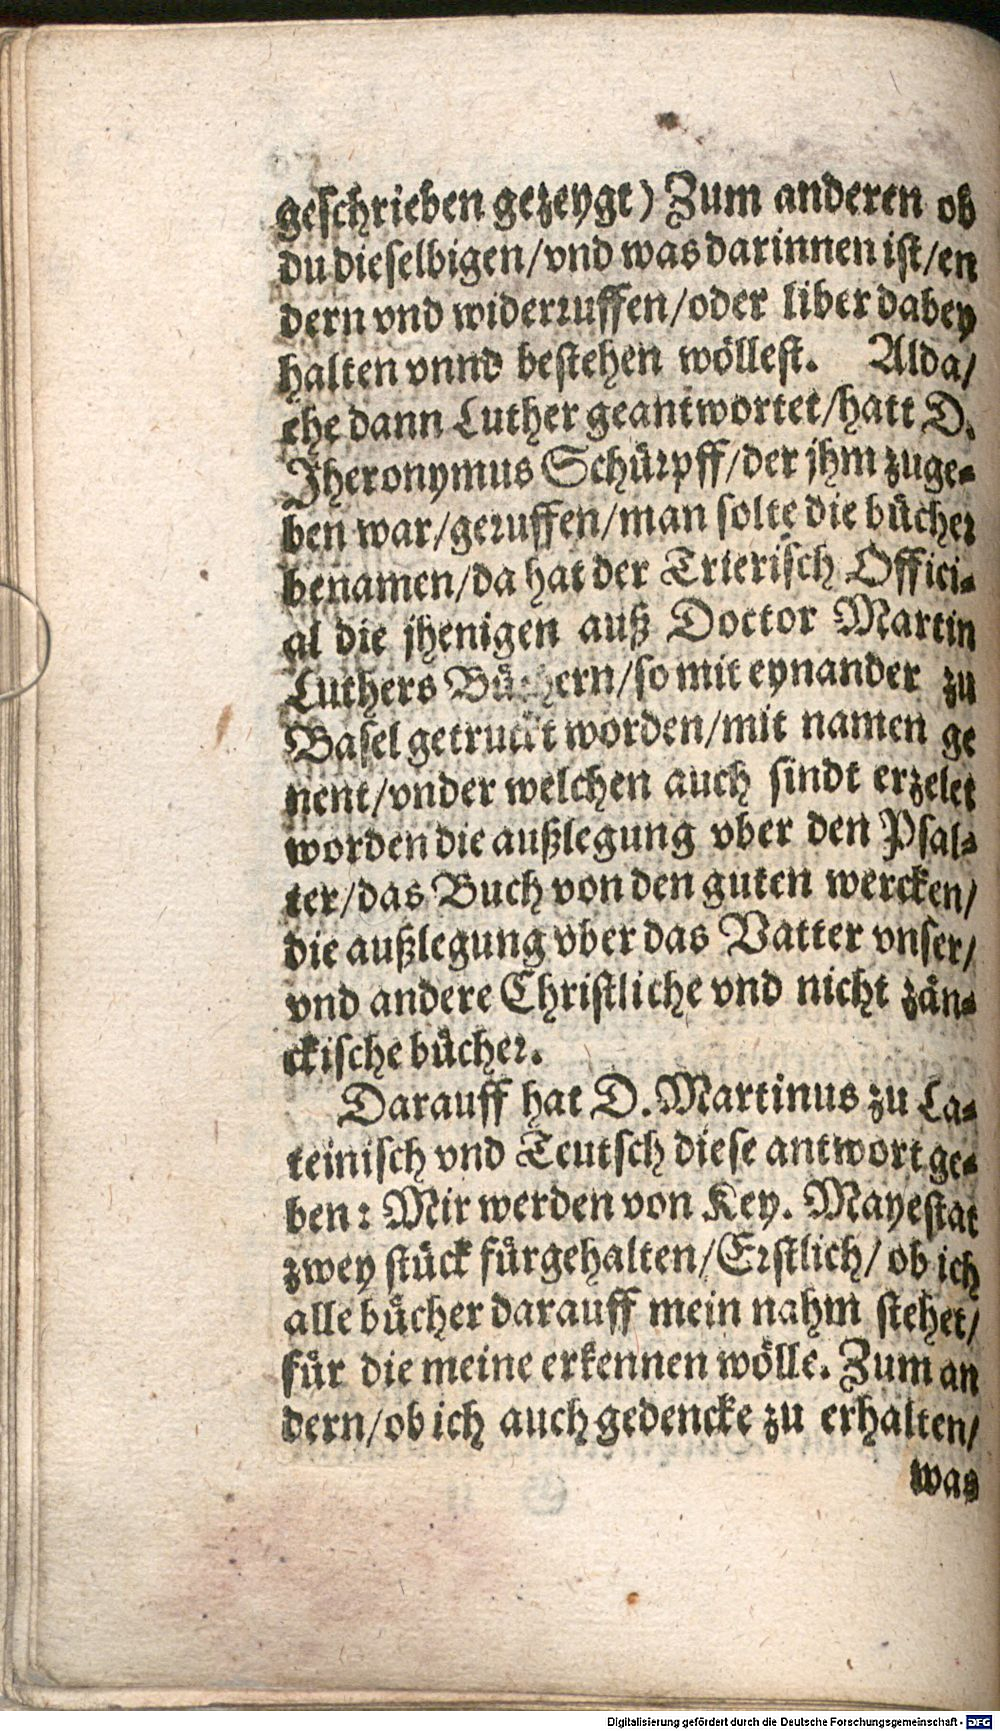 geschrieben gezeygt) Zum anderen ob
du dieselbigen/vnd was darinnen ist/en
dern vnd widerruffen/oder liber dabey
halten vnnd bestehen wöllest. Alda/
ehe dann Luther geantwortet/hatt D.
Jheronymus Schürpff/der jhm zuge⸗
ben war/geruffen/man solte die bücher
benamen/da hat der Trierisch Offici⸗
al die jhenigen auß Doctor Martin
Luthers Büchern/so mit eynander zu
Basel getruckt worden/mit namen ge
nent/vnder welchen auch sindt erzelet
worden die außlegung vber den Psal⸗
ter/das Buch von den guten wercken/
die außlegung vber das Vatter vnser/
vnd andere Christliche vnd nicht zän⸗
ckische bücher.
Darauff hat D. Martinus zu La⸗
teinisch vnd Teutsch diese antwort ge⸗
ben: Mir werden von Key. Mayestat
zwey stück fürgehalten/Erstlich/ ob ich
alle bücher darauff mein nahm stehet/
für die meine erkennen wölle. Zum an
dern/ob ich auch gedencke zu erhalten/
was
Digitalisierung gefördert durch die Deutsche Forschungsgemeinschaft - DFG